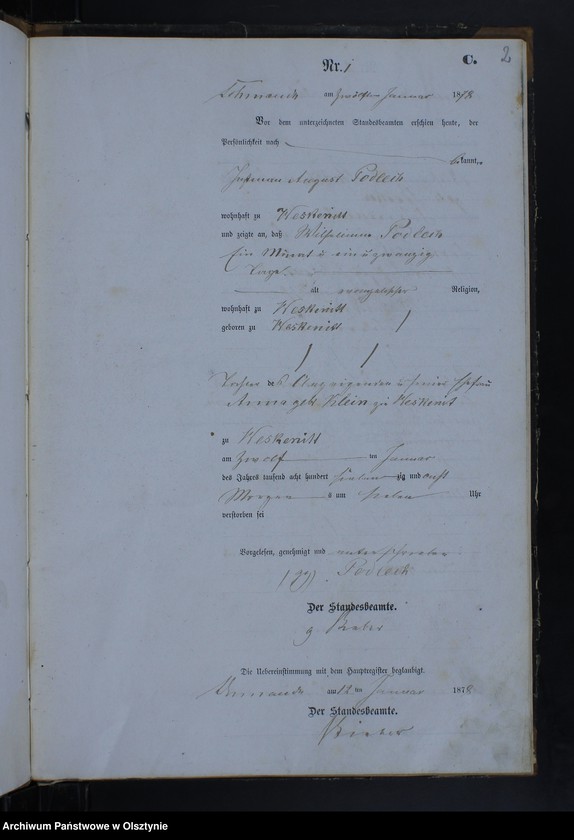 2
C.
Nr. 1
am zwölften Januar 1878
Vor dem unterzeichneten Standesbeamten erschien heute, der
Persönlichkeit nach
kannt,
August Podlech
wohnhaft zu Weskenitt
und zeigte an, daß Wilhelmine Podlech
Ein Monat u einundzwanzig
Tage
alt evangelischer Religion,
wohnhaft zu Weskenitt
geboren zu Weskenitt
Tochter des Anzeigenden u seiner Ehefrau
Anna geb. Klein zu Weskenitt
zu Weskenitt
am Zwölf ten Januar
des Jahres tausend acht hundert sieben zig und acht
Morgens um sieben Uhr
verstorben sei
Vorgelesen, genehmigt und unterschrieben
Podlech
Der Standesbeamte.
Die Uebereinstimmung mit dem Hauptregister beglaubigt.
am 12 ten Januar 1878
Der Standesbeamte.
Archiwum Państwowe w Olsztynie